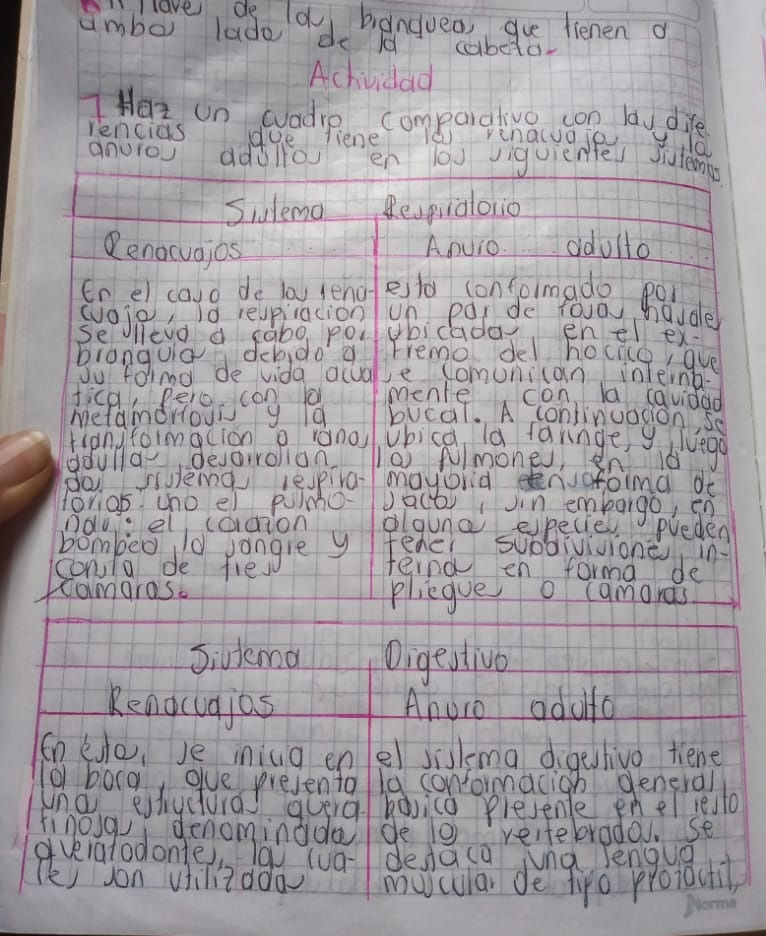 llave de las branqueas que tienen a
ambos lados de la cabeza.
Actividad
1 Haz un cuadro comparativo con las dife
rencias que tiene los renacuajos y los
anuros adultos en los siguientes sistemas.
Sistema Respiratorio
Renacuajos
Anuro adulto
En el caso de los rena-
cuajos, la respiracion
se lleva a cabo por
branquias, debido a
su forma de vida acua
tica, pero con la
metamorfosis y la
transformación a ranas
adultas desarrollan
dos sistemas respira-
torios uno el pulmo-
nar: el corazon
bombea la sangre y
consta de tres
camaras.
esta conformado por
un par de fosas nasales
ubicadas en el ex-
tremo del hocico, que
se comunican interna-
mente con la cavidad
bucal. A continuación, se
ubica la faringe, y luego
los pulmones, en la
mayoria en forma de
saco, sin embargo, en
algunas especies pueden
tener subdivisiones in-
terna en forma de
pliegues o camaras
Sistema Digestivo
Renacuajos
Anuro adulto
En ésta, se inicia en
la boca, que presenta
una estructuras quera
tinosas, denominadas
queratodontes, las cua-
les son utilizadas
el sistema digestivo tiene
la conformación general
basica presente en el resto
de los vertebrados. se
destaca una lengua
muscular de tipo protáctil,
Norma